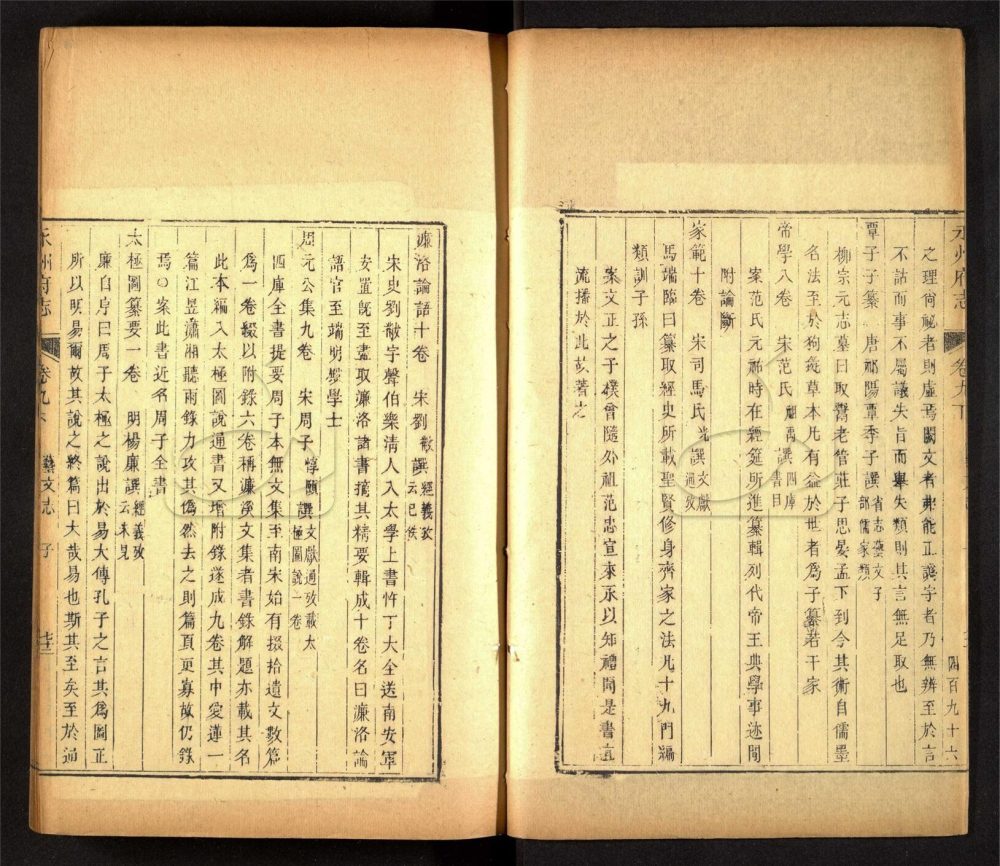 永州府志 卷九下 四百九十六
之理尙祕者則虛焉闕文者弗能正譌字者乃無辨至於言
不詁而事不屬議失旨而舉失類則其言無足取也
覃子子纂 唐祁陽覃季子譔 省志藝文子部儒家類
柳宗元志墓曰取鬻老管莊子思晏孟下到今其術自儒墨
名法至於狗彘草木凡有益於世者爲子纂若干家
帝學八卷 宋范氏祖禹譔 四庫書目
案范氏元祐時在經筵所進纂輯列代帝王典學事迹間
附論斷
家範十卷 宋司馬氏光譔 文獻通攷
馬端臨曰纂取經史所載聖賢修身齊家之法凡十九門編
類訓子孫
案文正之子樸會隨外祖范忠宣來永以知禮聞是書宜
流播於此㳟著之
濂洛論語十卷 宋劉敵譔 經義攷云已佚
宋史劉敵字聲伯樂清人入太學上書忤丁大全送南安軍
安置旣至盡取濂洛諸書摘其精要輯成十卷名曰濂洛論
語官至端明殿學士
周元公集九卷 宋周子惇頤譔 文獻通攷載太極圖說一卷
四庫全書提要周子本無文集至南宋始有掇拾遺文數篇
爲一卷綴以附錄六卷稱濂溪文集者書錄解題亦載其名
此本編入太極圖說通書又增附錄遂成九卷其中愛蓮一
篇江昱瀟湘聽雨錄力攻其僞然去之則篇頁更寡故仍錄
焉○案此書近名周子全書
太極圖纂要一卷 明楊廉譔 經義攷云未見
廉自序曰周子太極之說出於易大傳孔子之言其爲圖正
所以明易爾故其說之終篇曰大哉易也斯其至矣至於通
永州府志 卷九下 藝文志 子